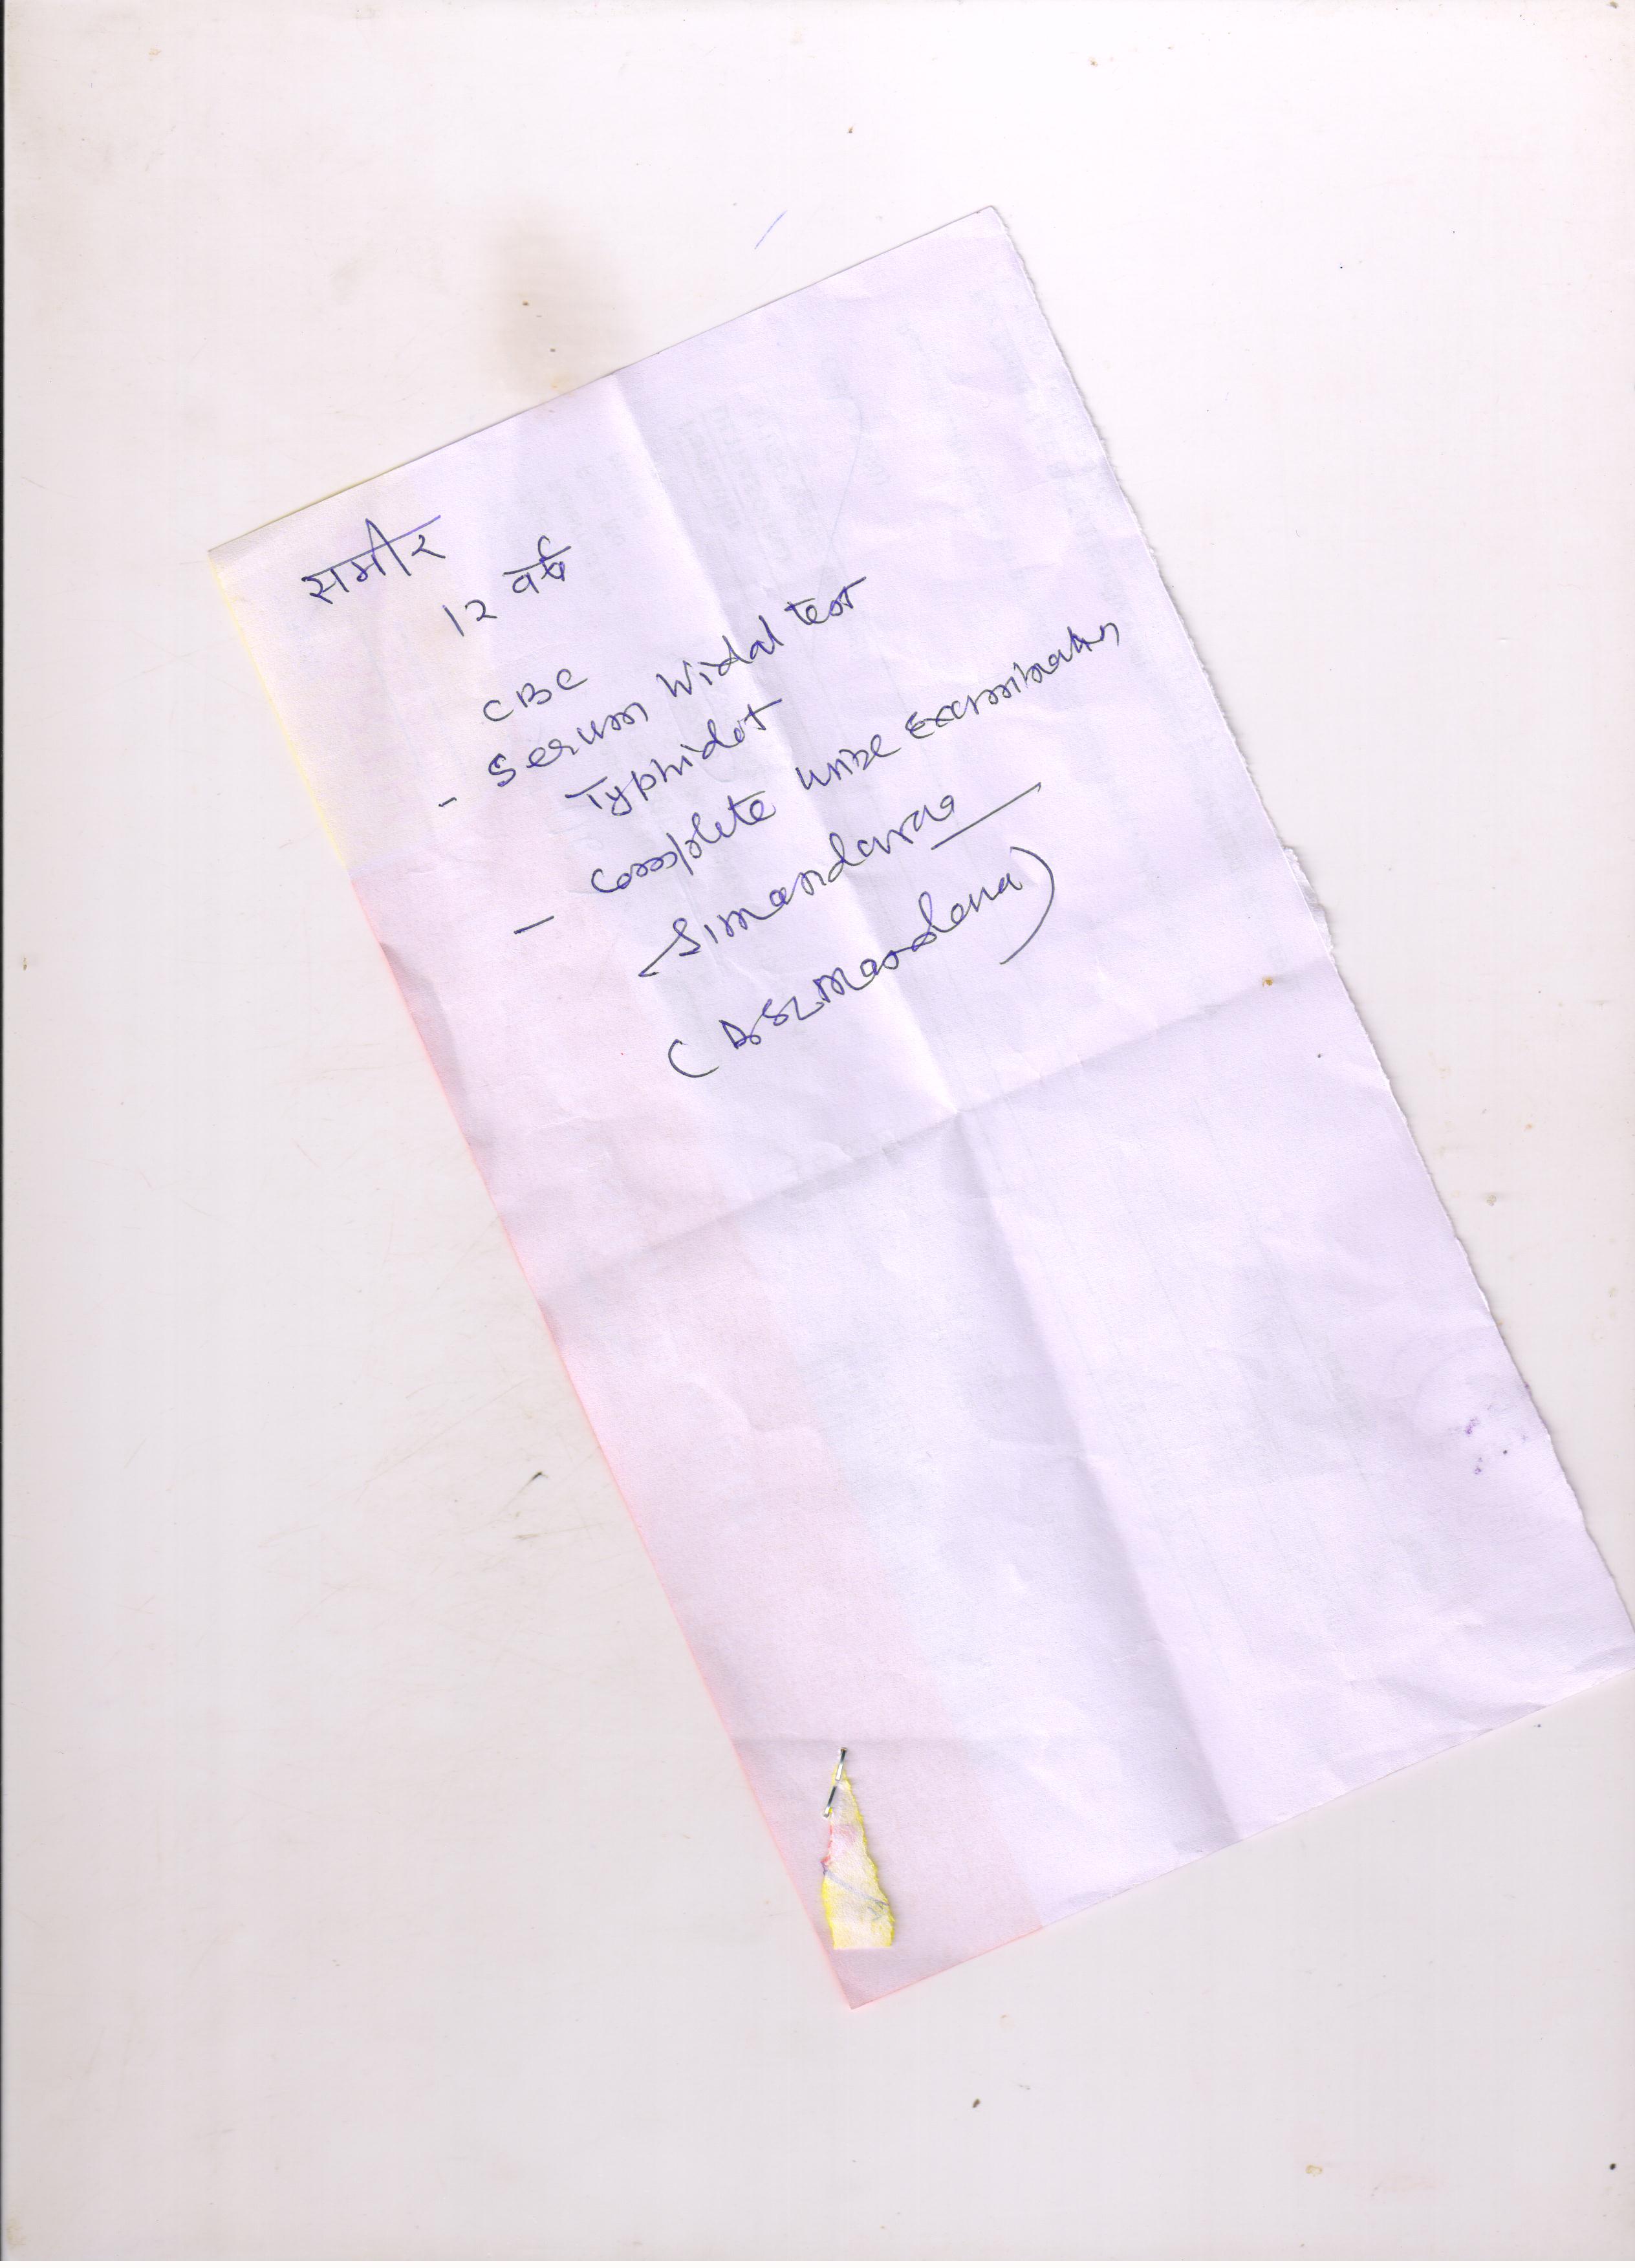 समीर
12 वर्ष
CBC
- Serum Widal test
Typhidot
- Complete Urine Examination
Simandara
(Dr S.L. Mandara)